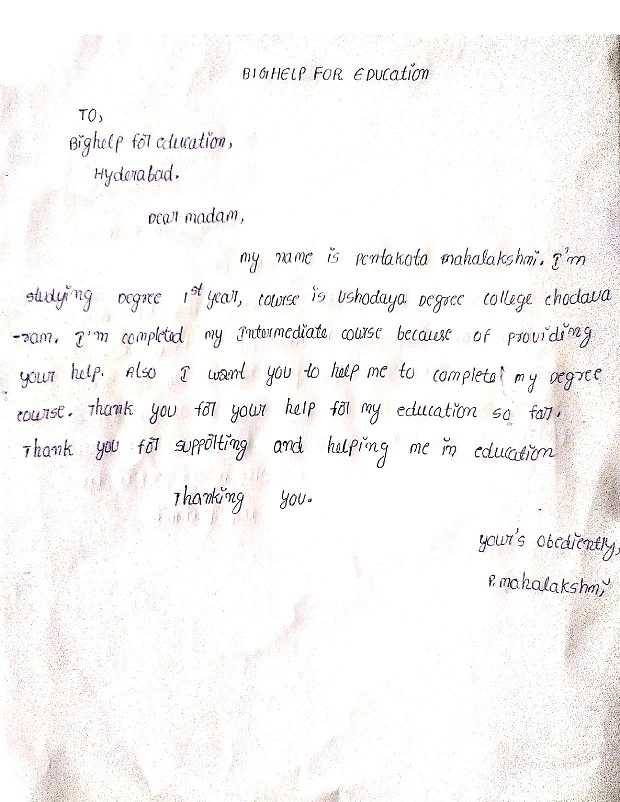 BIGHELP FOR EDUCation
TO,
Bighelp for education,
Hyderabad.
Dear madam,
my name is pentakota mahalakshmi. I'm
studying Degree 1st year, course is Ushodaya Degree college chodava
-ram. I'm completed my Intermediate course because of providing
your help. Also I want you to help me to complete my Degree
course. Thank you for your help for my education so far.
Thank you for supporting and helping me in education
Thanking you.
your's obediently,
P. mahalakshmi